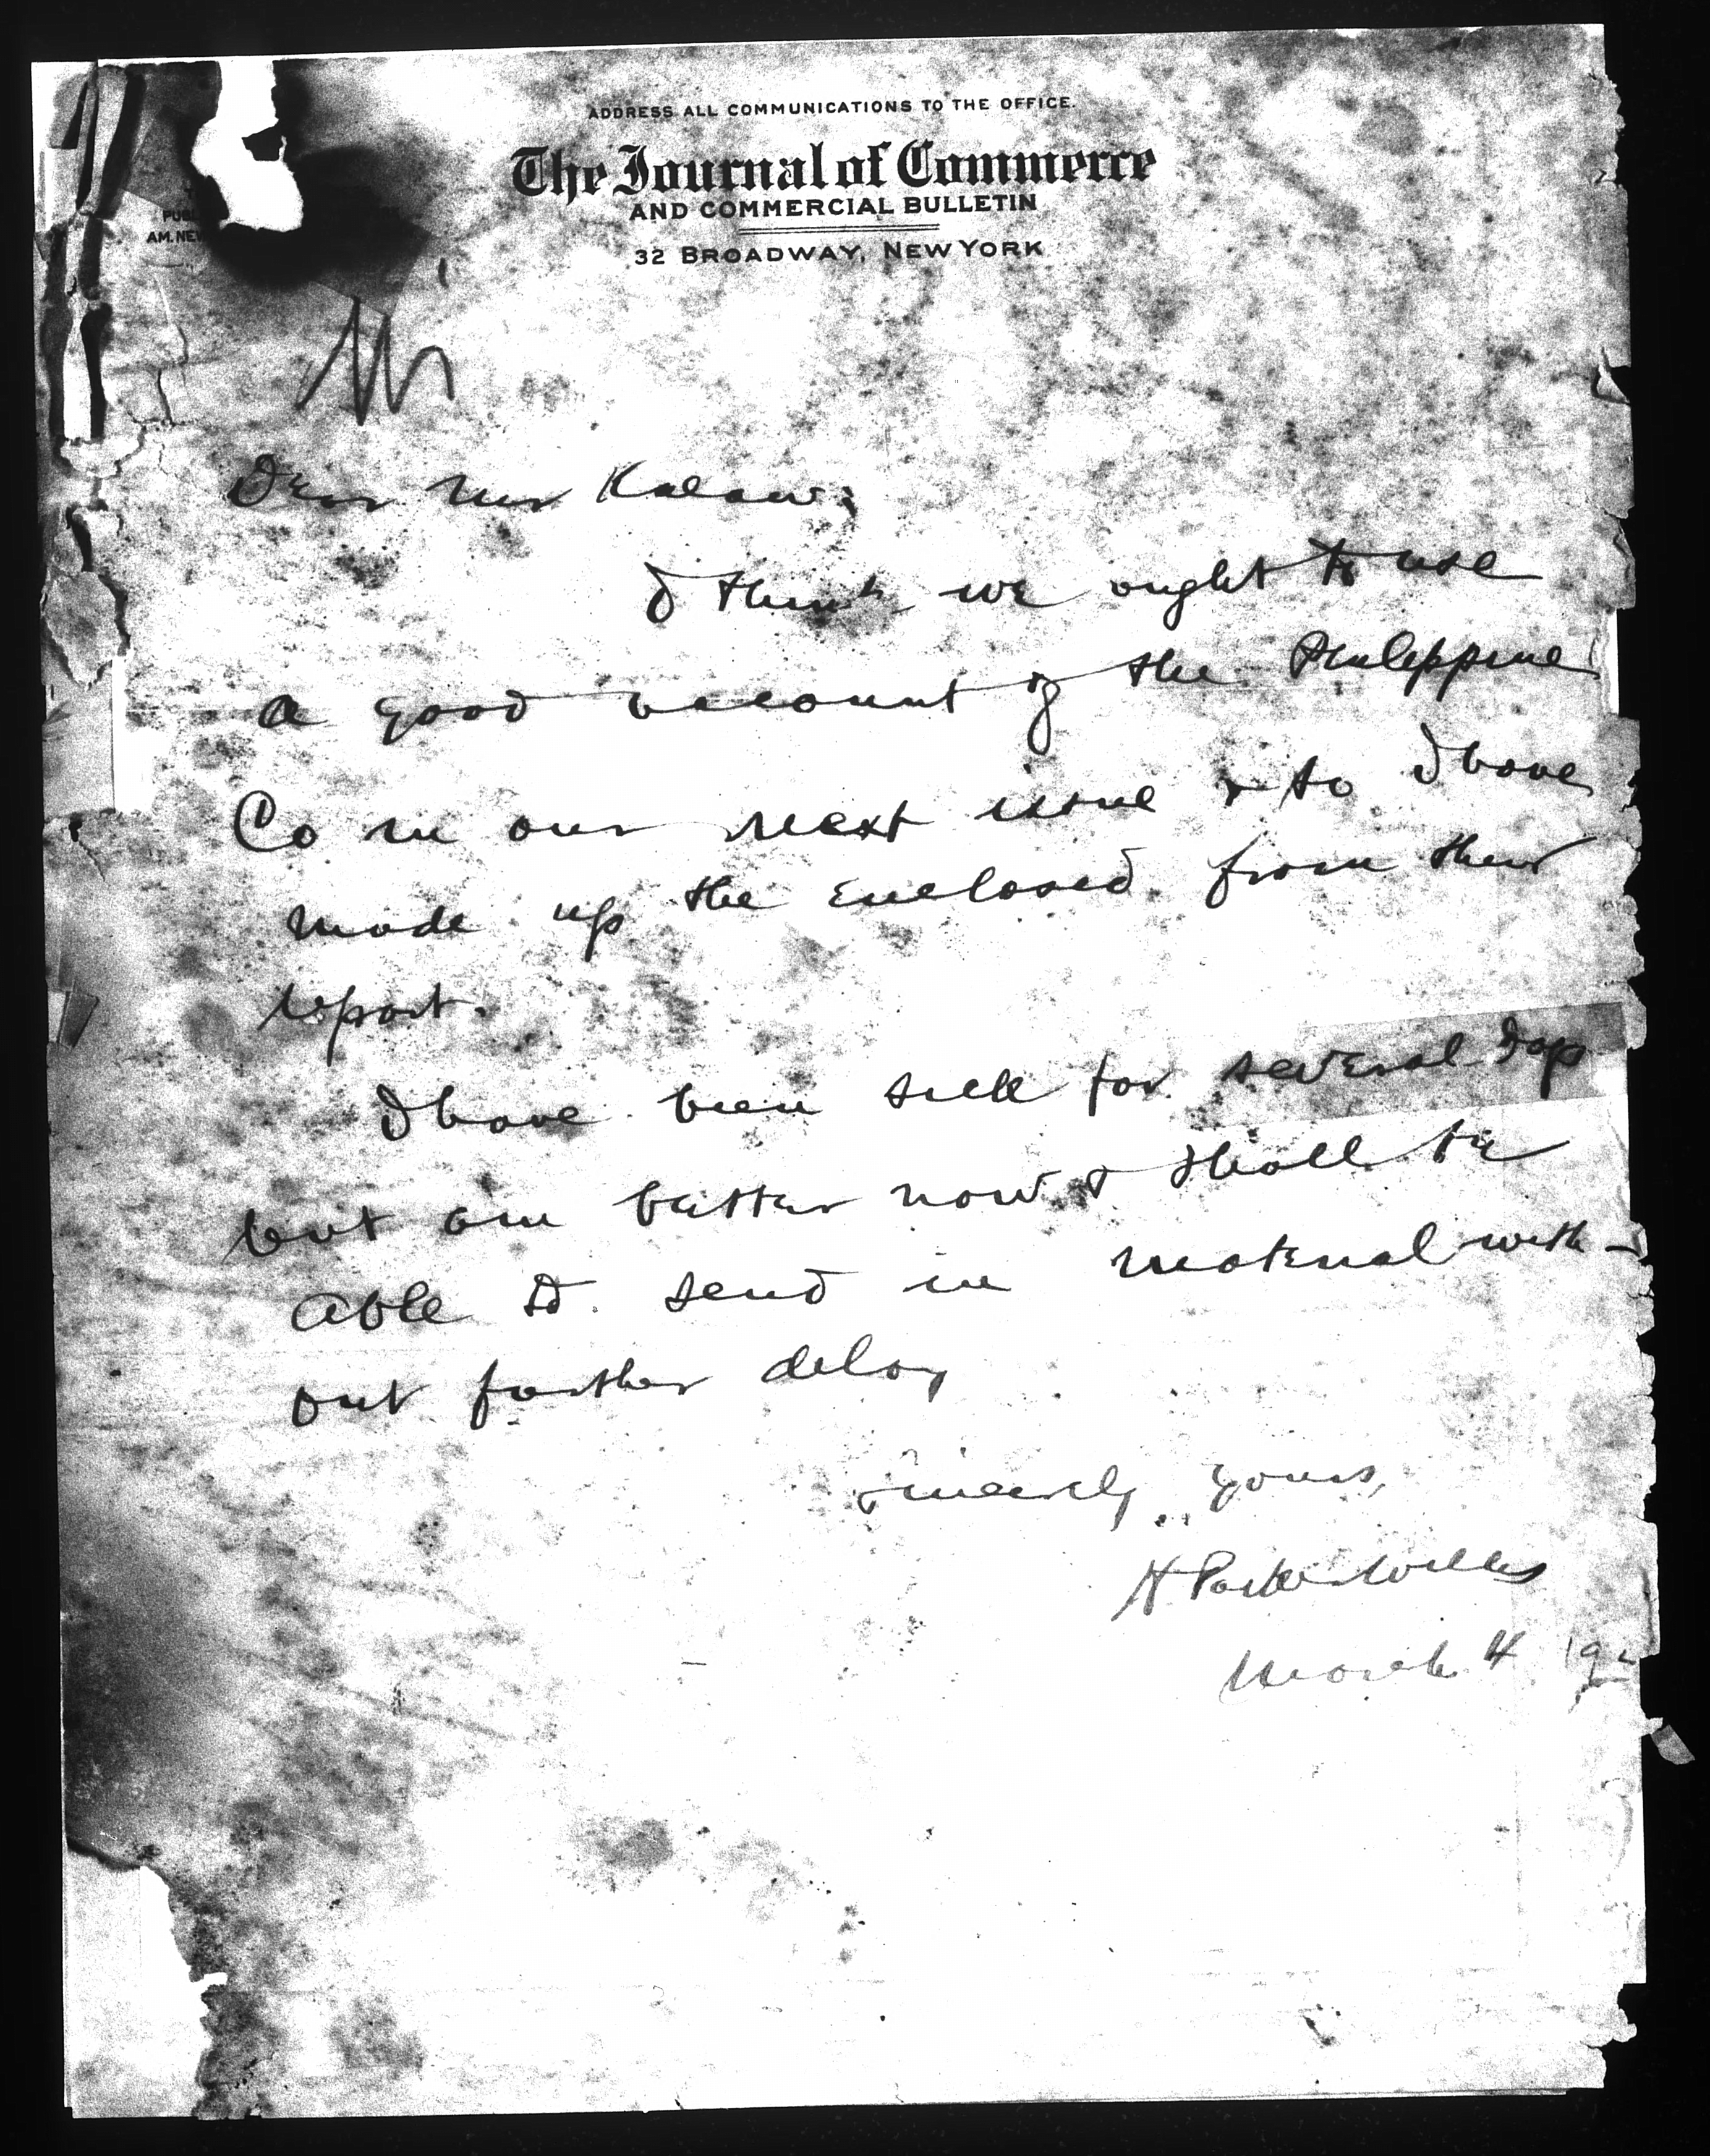 ADDRESS ALL COMMUNICATIONS TO THE OFFICE.
The Journal of Commerce
AND COMMERCIAL BULLETIN
32 BROADWAY, NEW YORK
Dear Mr Kalaw:
I think we ought to use
a good account of the Philippine
Co in our next issue & so I have
made up the enclosed from their
report.
I have been sick for several days
but am better now & shall be
able to send in material with-
out further delay
Sincerely yours,
H Parker Willis
March 4 192